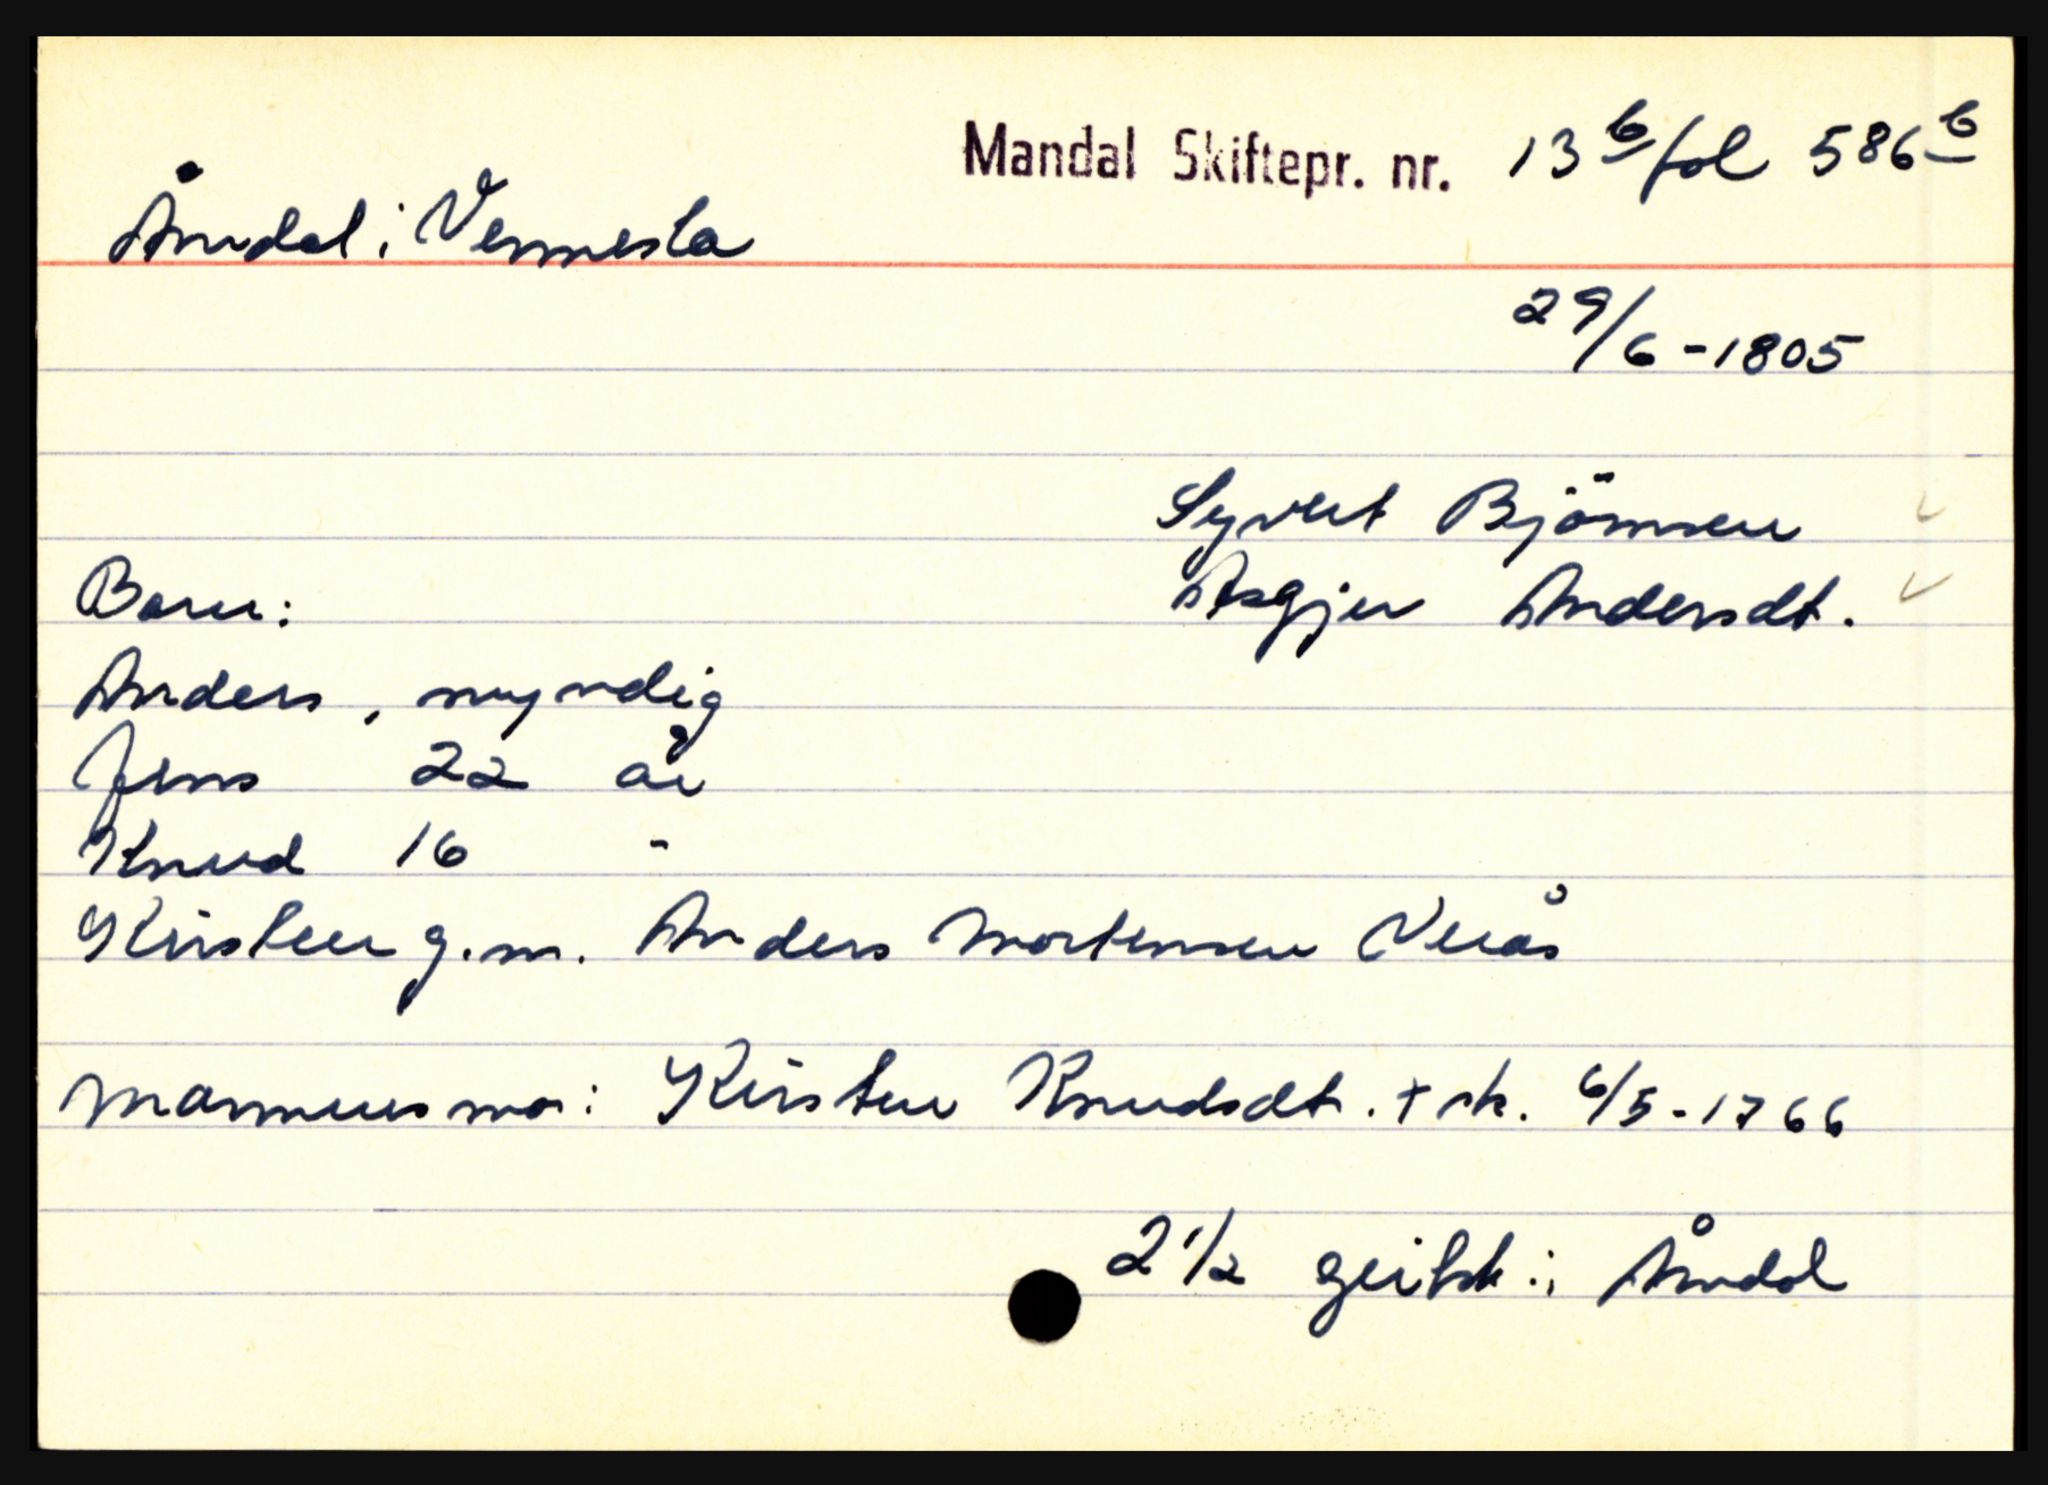 Mandal Skiftepr. nr. 13 b fol 586 b
Åmdal i Vennesla
29/6 - 1805
Syvert Björnsen
Barn: Asgjer Andersdt.
Anders, myndig
Jens 22 år
Knud 16 -
Kirsten g.m. Anders Mortensen Verås
Mannens mor: Kirsten Knudsdt. + sk. 6/5 - 1766
2 1/2 geitsk. i Åmdal